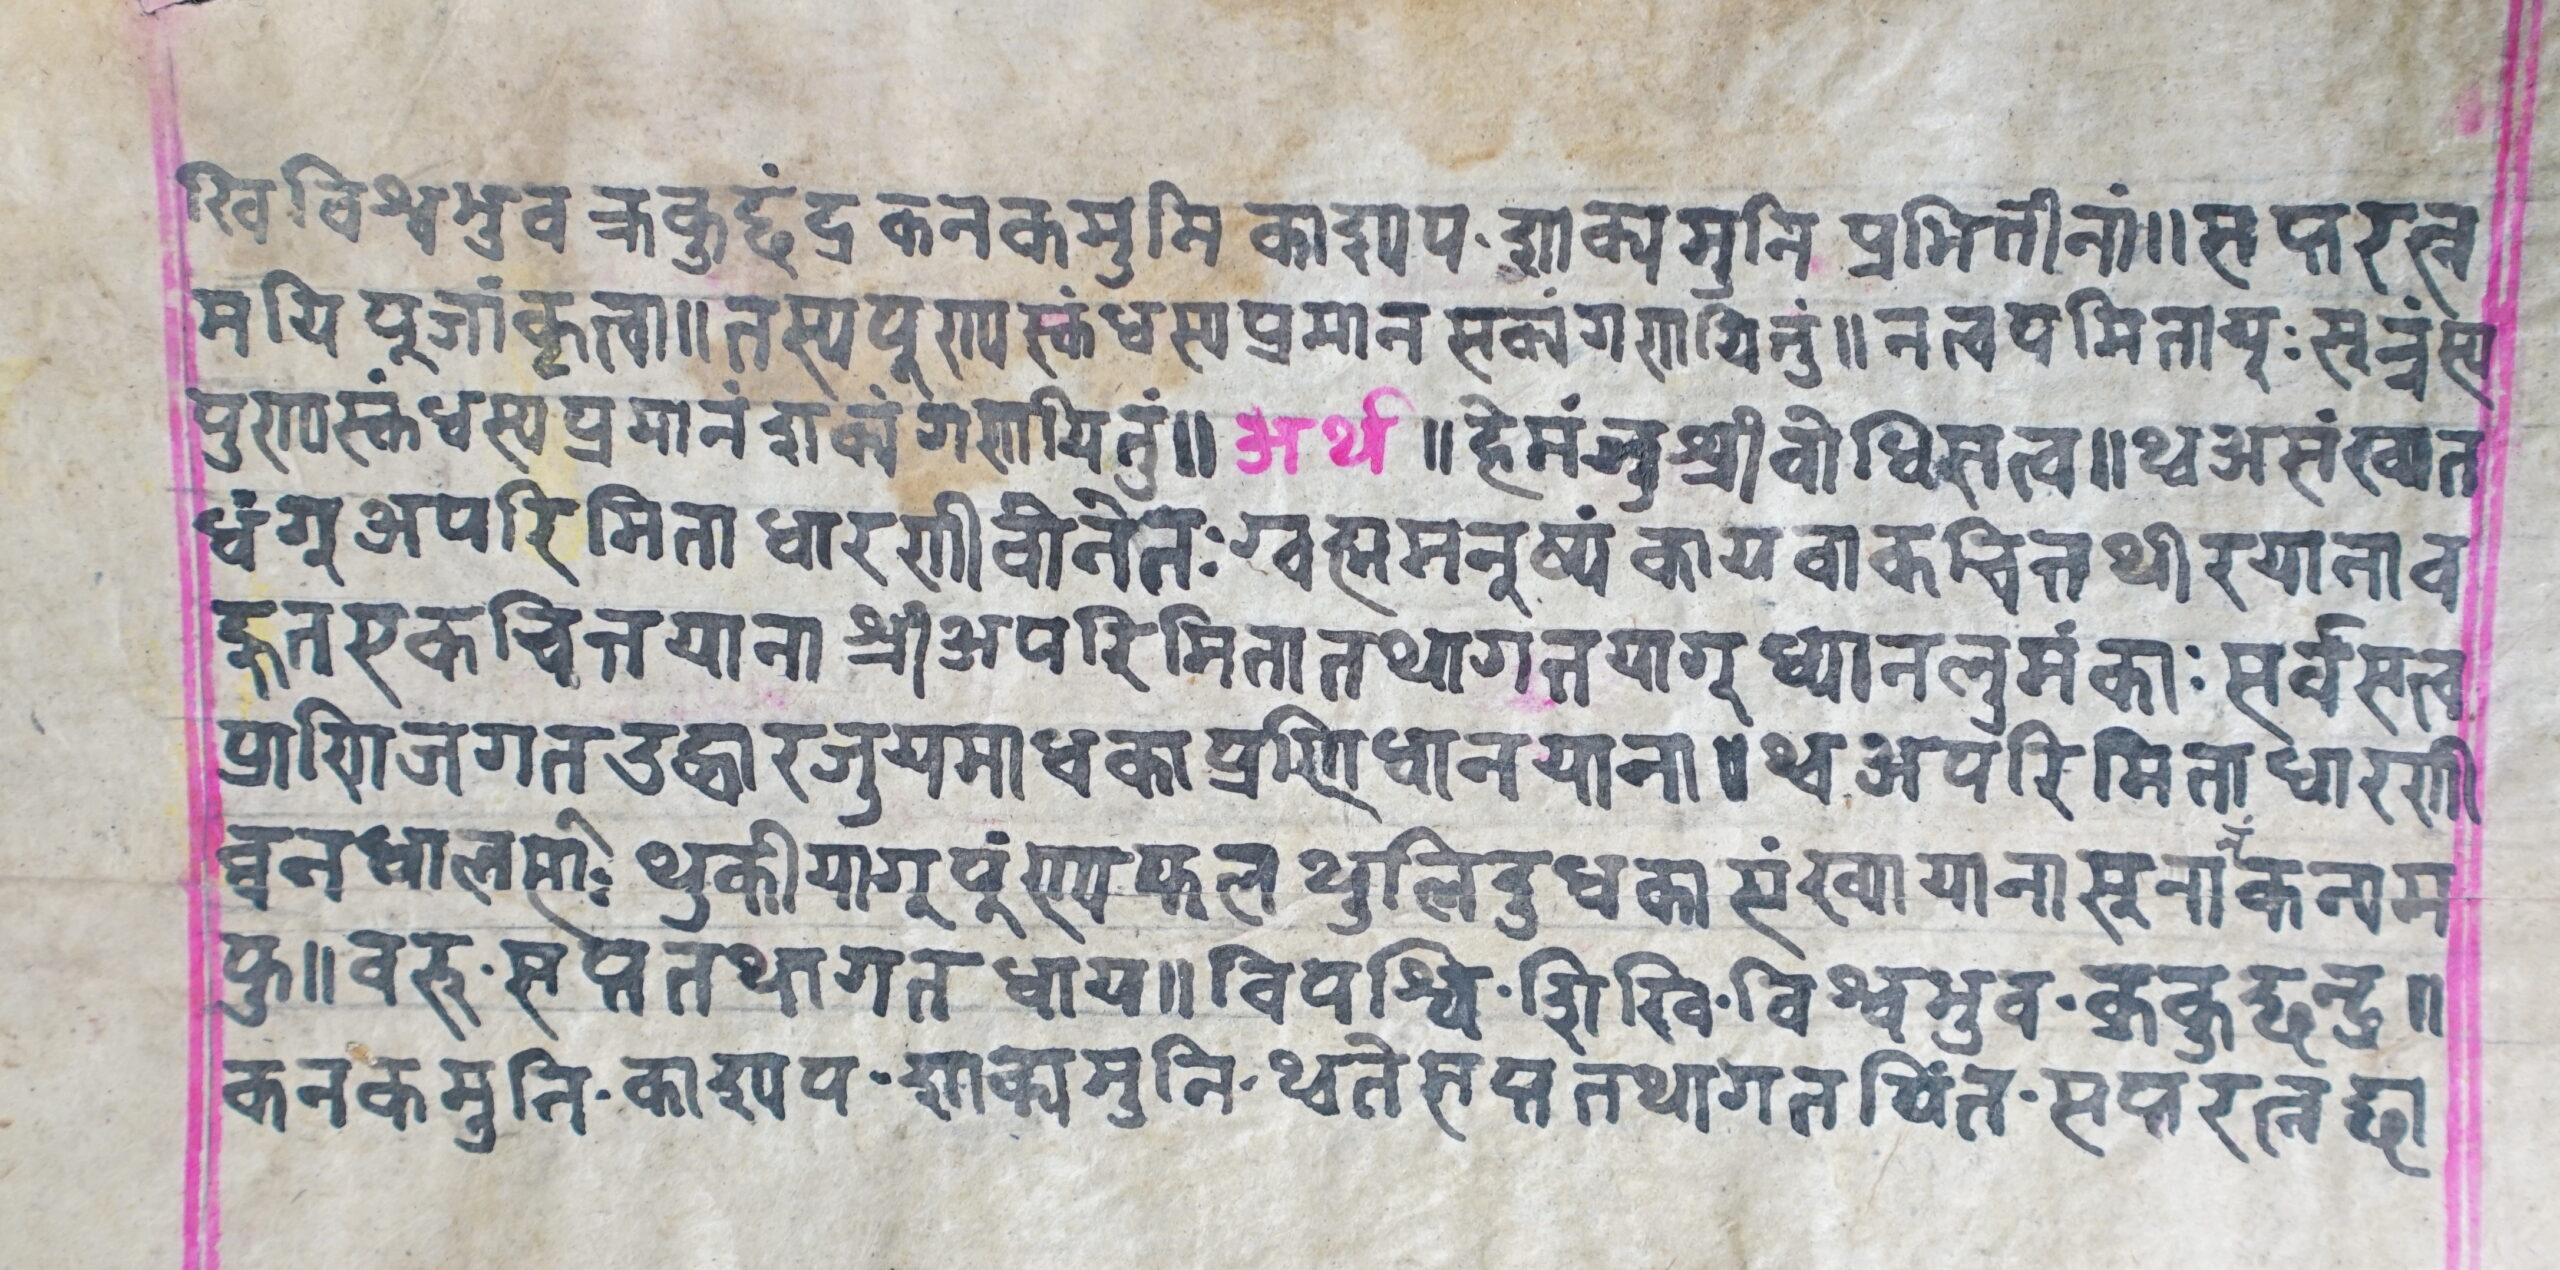 खि विश्वभुव क्रकुछंद्र कनकमुमि काश्यप · शाक्यमुनि प्रमितीनां॥ सप्तरत्न
मयि पूजां कृत्वा॥ तस्य पूण्यस्कंधस्य प्रमान सक्यं गणायितुं॥ नत्वपमितायूः सूत्रंस्य
पुण्यस्कंधस्य प्रमानं शक्यं गणायितुं॥ अर्थ ॥ हे मंजुश्री वोधिसत्व॥ थ्व असंख्यात
धंगू अपरिमिता धारणी वोनेतः ग्वह्ममनूष्यं कायवाकचित्त थीरयानाव
कूत एकचित्तयाना श्रीअपरिमिता तथागतयागू ध्यानलुमंकाः सर्वसत्व
प्राणिजगत उद्धारजुयमाधका प्रणिधानयाना॥ थ्व अपरिमिता धारणी
ब्वनधालसोः थुकीयागू पूंण्यफल थुलिदुधका संख्यायाना सूनानं कनाम
फु॥ वरु · सप्ततथागत धाय॥ विपश्वि · शिखि · विश्वभुव · क्रकुछन्द्र॥
कनकमुनि · काश्यप · शाक्यमुनि · थ्वते सप्ततथागतपिंत · सप्तरत्न द्धा